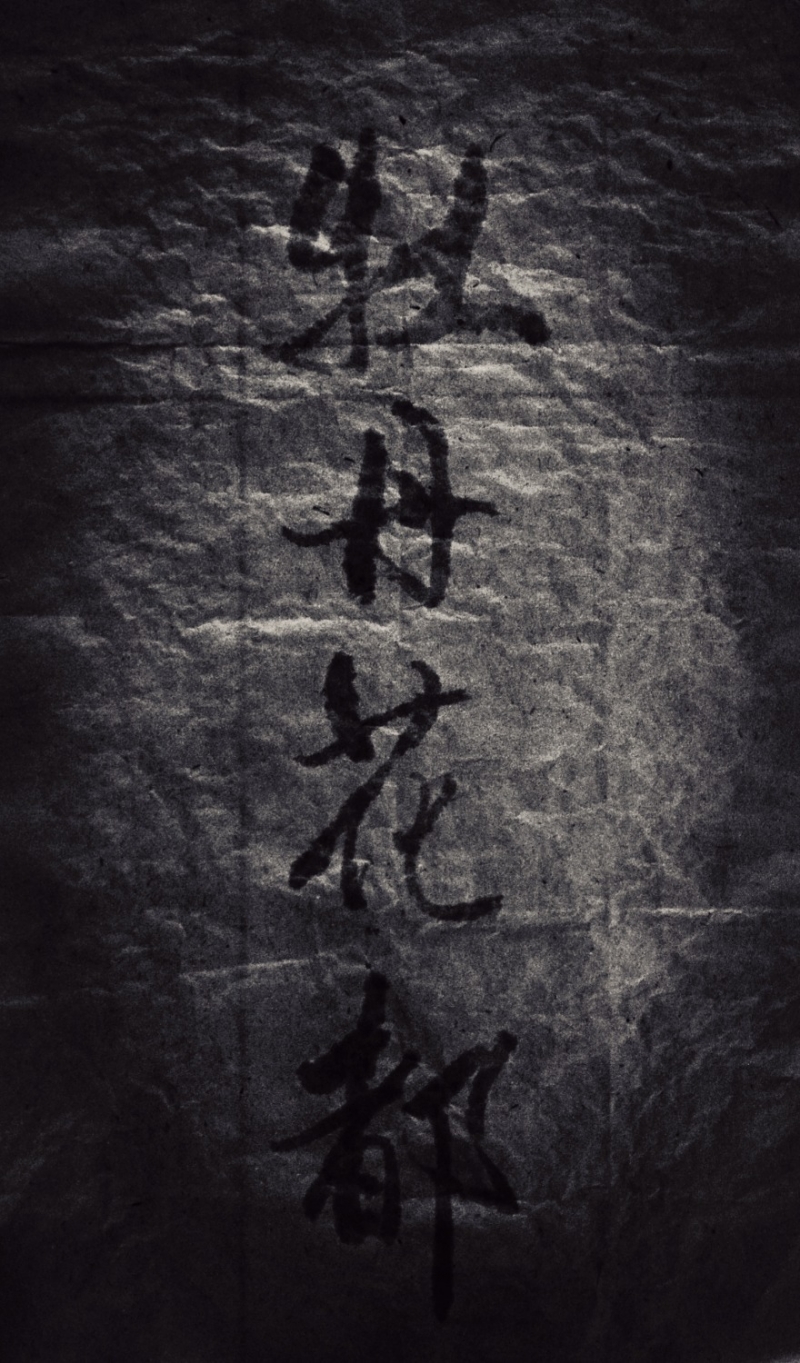 牡丹花都